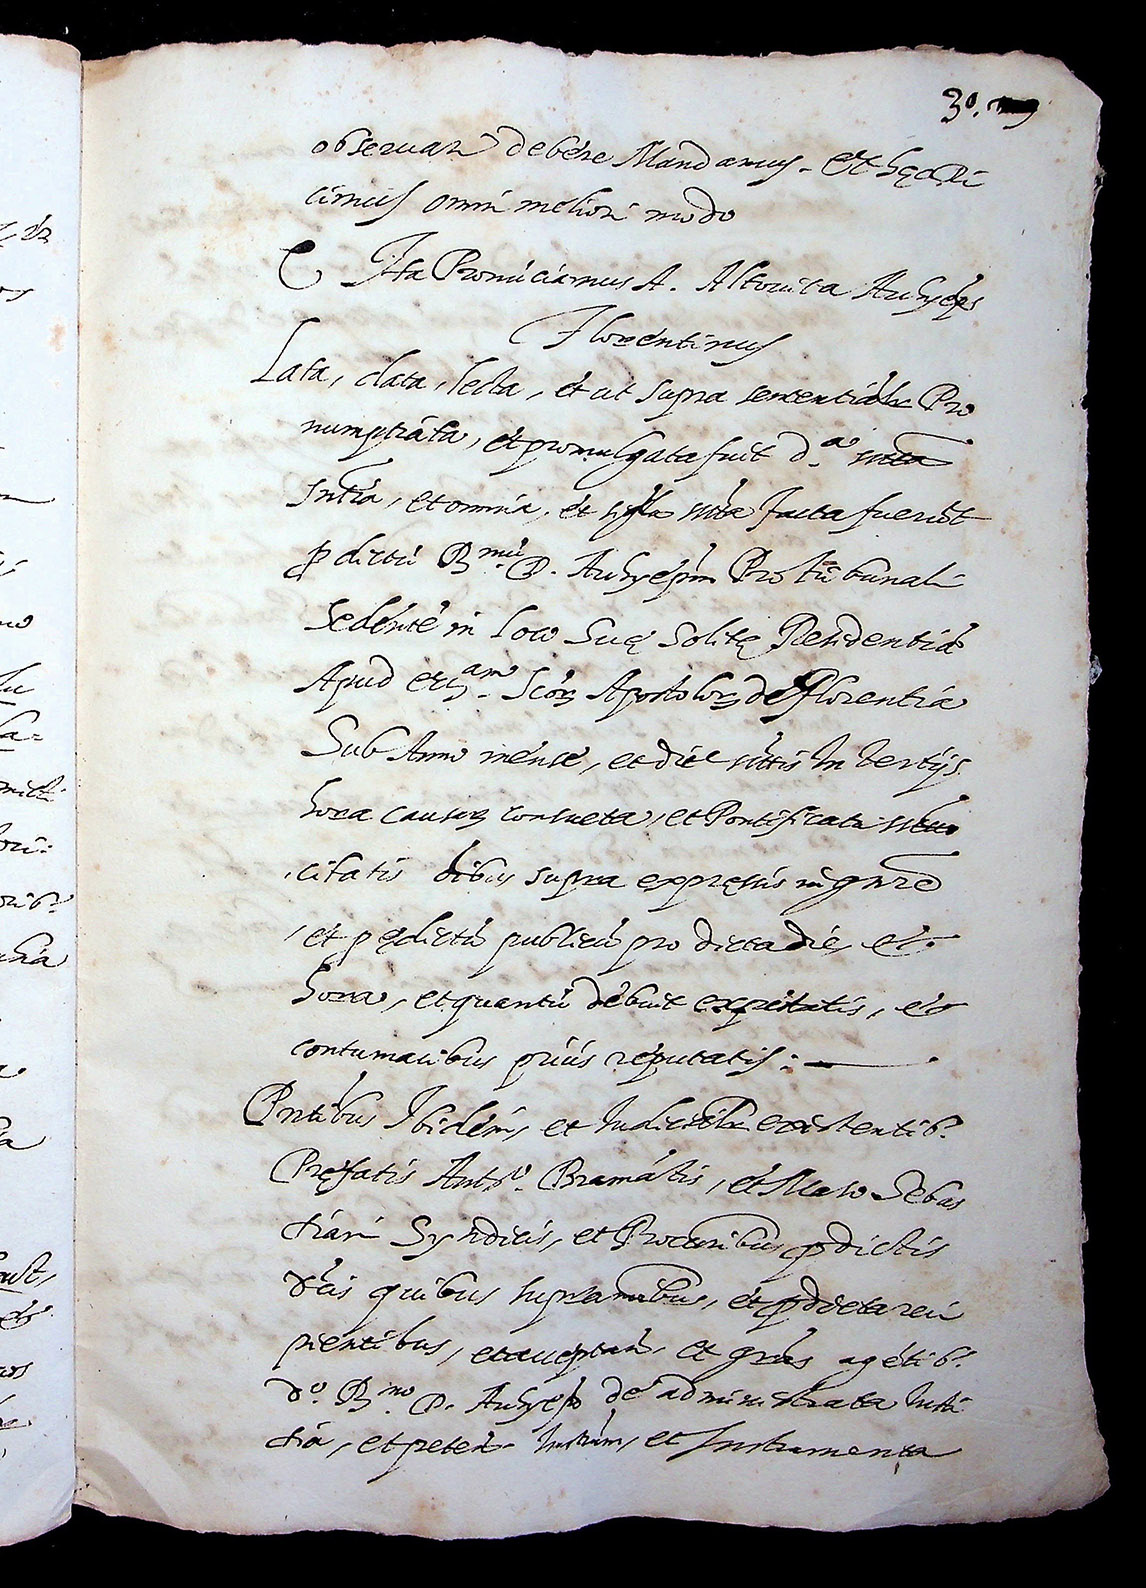 30.
observari debere Mandamus. Et hęc Di
cimus omni meliori modo
Ita Pronūciamus A. Altouita Archiep̄s
Florentinus
Lata, data, lecta, et ut supra sententialr Pro
numptiata, et promulgata fuit d.a
sn̄tia, et omnia, et facta fuerūt
p dictū R.mū D. Archiep̄m Pro tribunali
sedentē in loco suę solitę Residentię
Apud eccl.am Sctōrꝫ Apostolorꝫ de Florentia
Sub Anno mense, et die in tertijs
hora causarꝫ consueta, et Pontificatu
citatis oībus supra expręssis in gnře
et p ędictū publicū pro dicta die, et
hora, et quantū debuit expectatis, et
contumacibus prius reputatis:
Pn̄tibus Ibidem, et Iudicialr existentib.
Pręfatis Antº. Bramātis, et Maso Sebas
tiani Syndicis, et Procuribus p dictis
quibus supra nōibus, et p dicta reci
pientibus, et acceptan. et grās agētib.
dº. R.mo D. Archiepº de administrata Iusti
tia, et peten. Instrūm, et Instrumenta